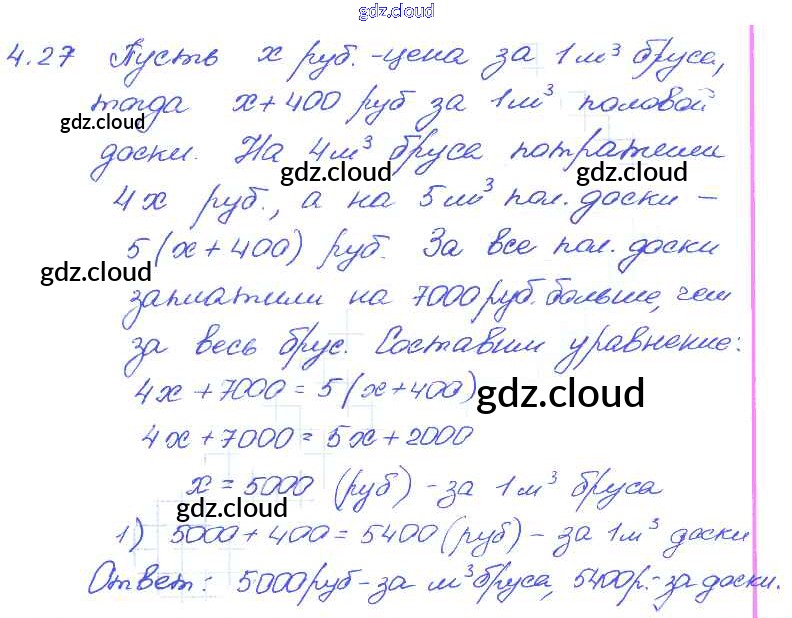 gdz.cloud
4.27 Пусть x руб. - цена за 1 м³ бруса,
тогда x + 400 руб за 1 м³ половой
gdz.cloud
доски. На 4 м³ бруса потратили
gdz.cloud gdz.cloud
4x руб., а на 5 м³ пол. доски -
5(x + 400) руб. За все пол. доски
gdz.cloud
заплатили на 7000 руб. больше, чем
за весь брус. Составим уравнение:
4x + 7000 = 5(x + 400)
gdz.cloud
4x + 7000 = 5x + 2000
x = 5000 (руб) - за 1 м³ бруса
gdz.cloud
1) 5000 + 400 = 5400 (руб) - за 1 м³ доски
Ответ: 5000 руб - за м³ бруса, 5400 р. - за доски.